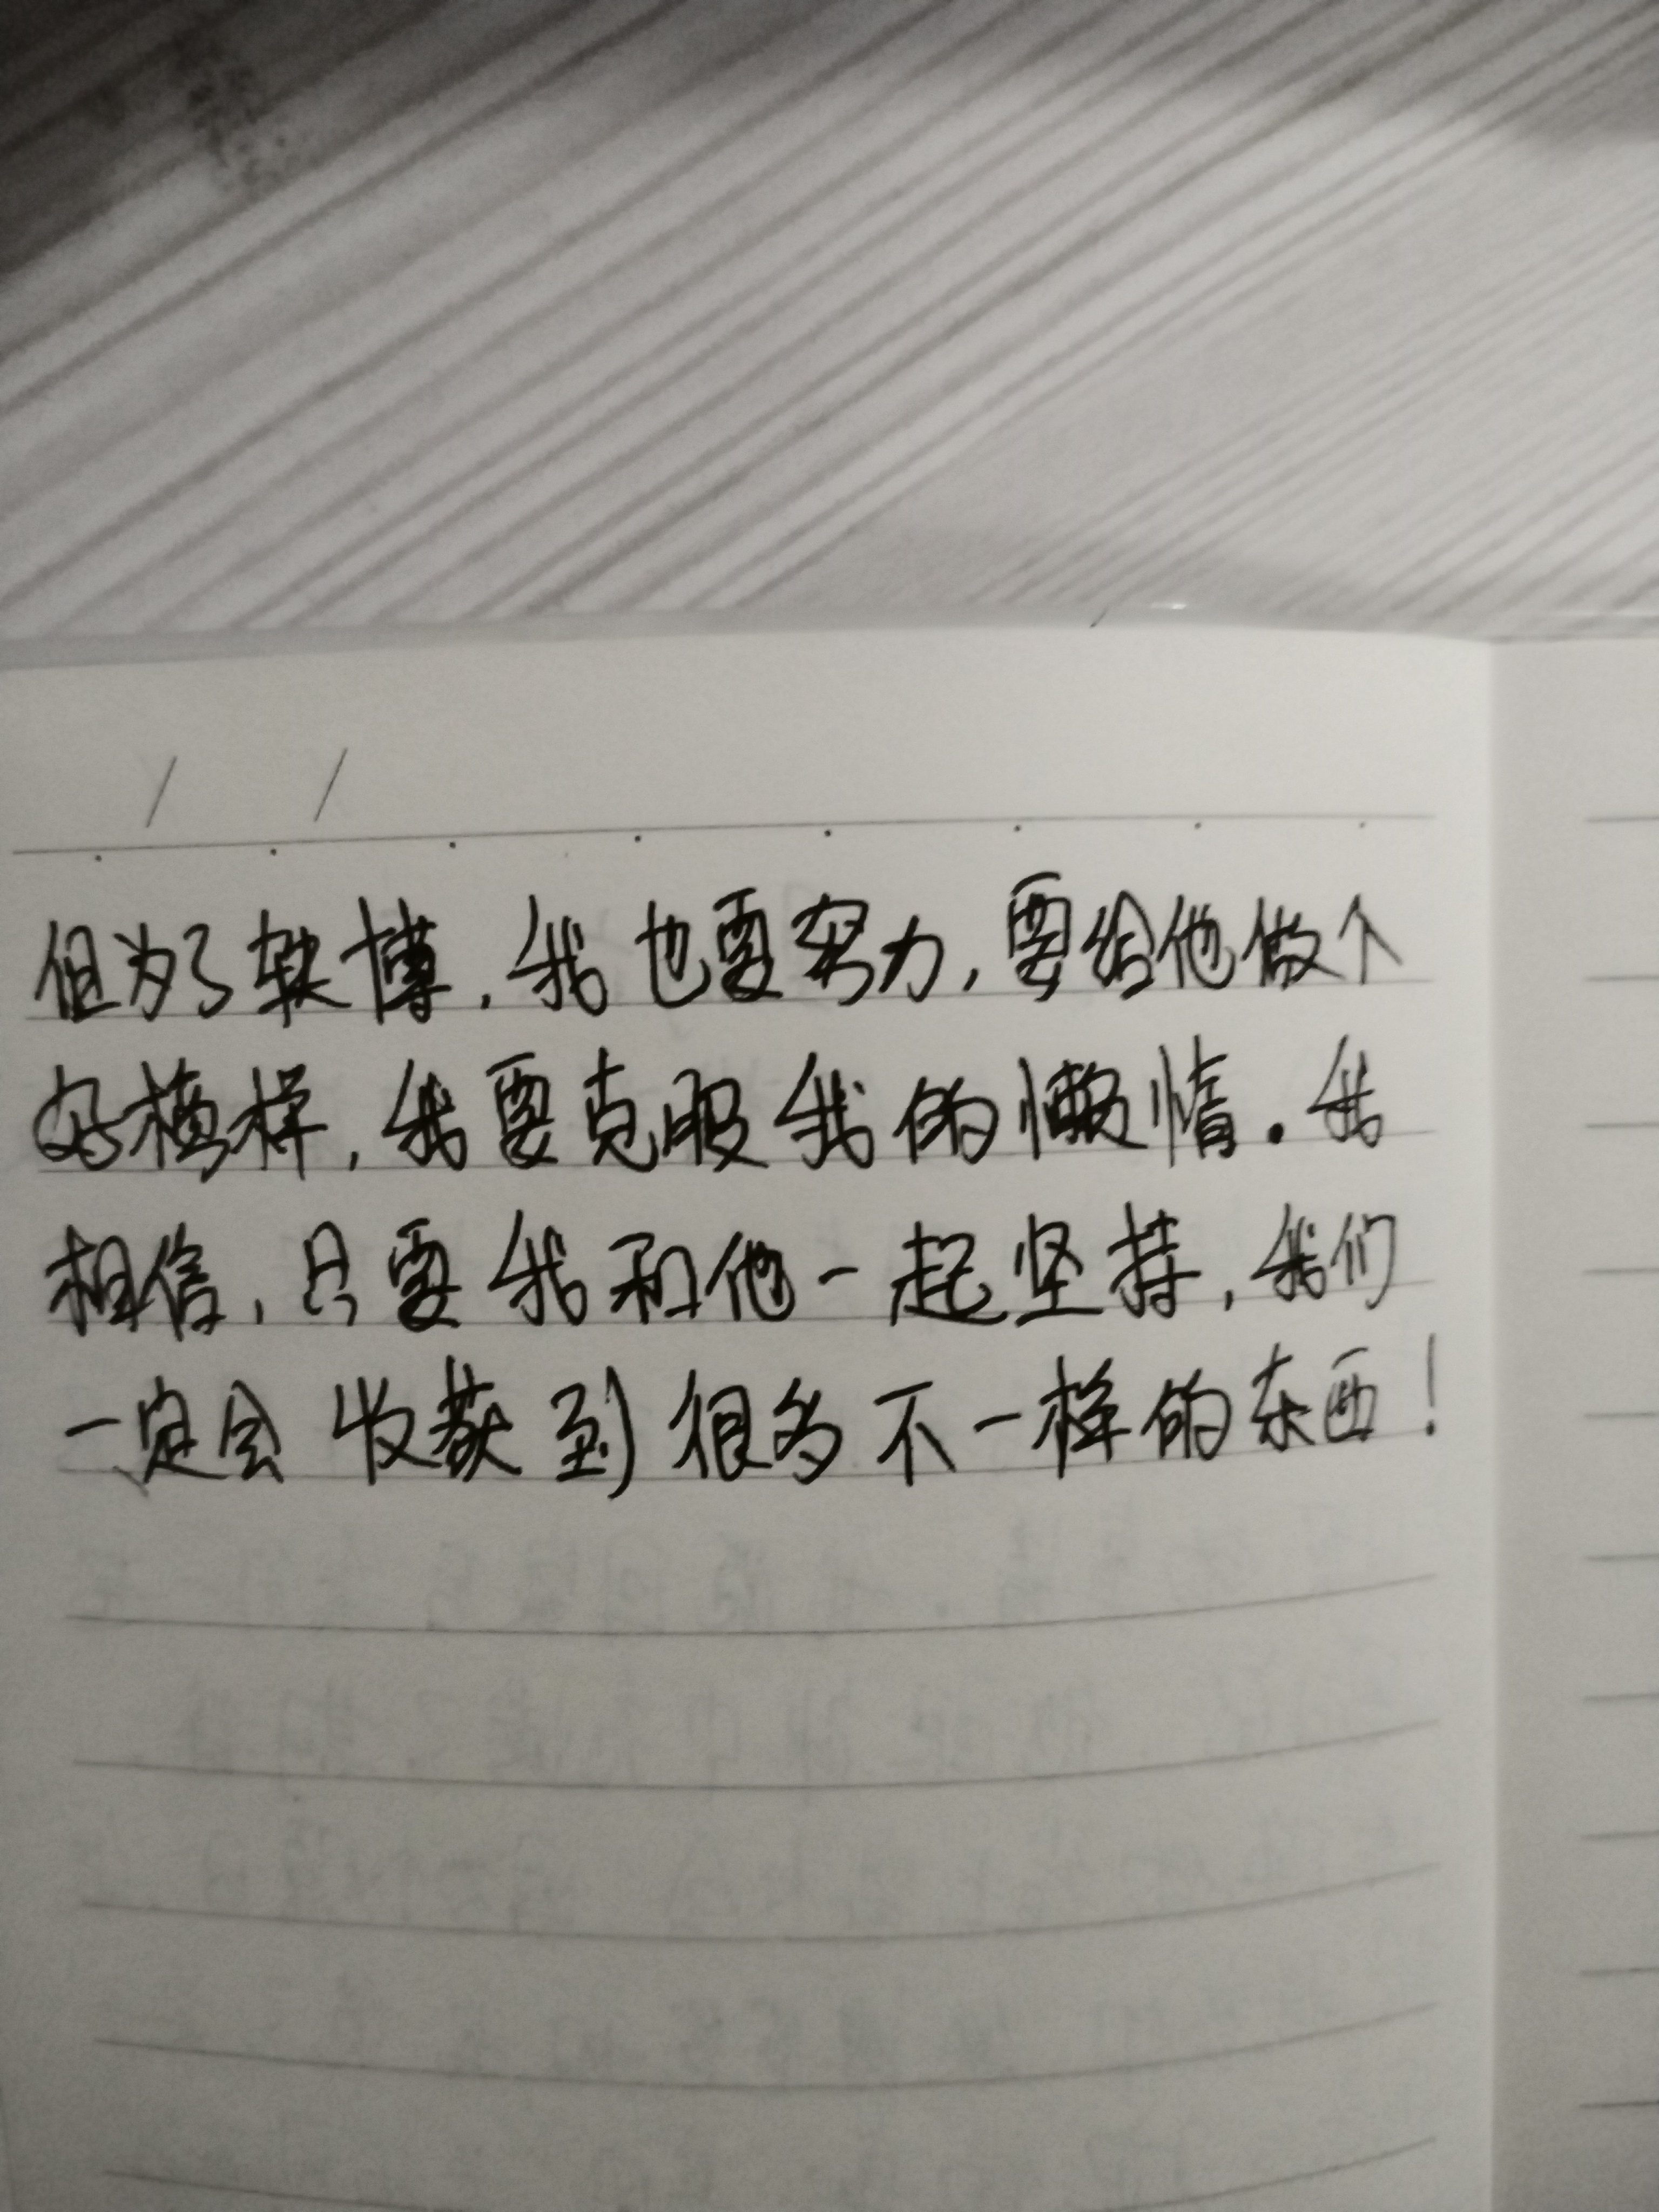 但为了轶博，我也要努力，要给他做个
好模样，我要克服我的懒惰．我
相信，只要我和他一起坚持，我们
一定会收获到很多不一样的东西！